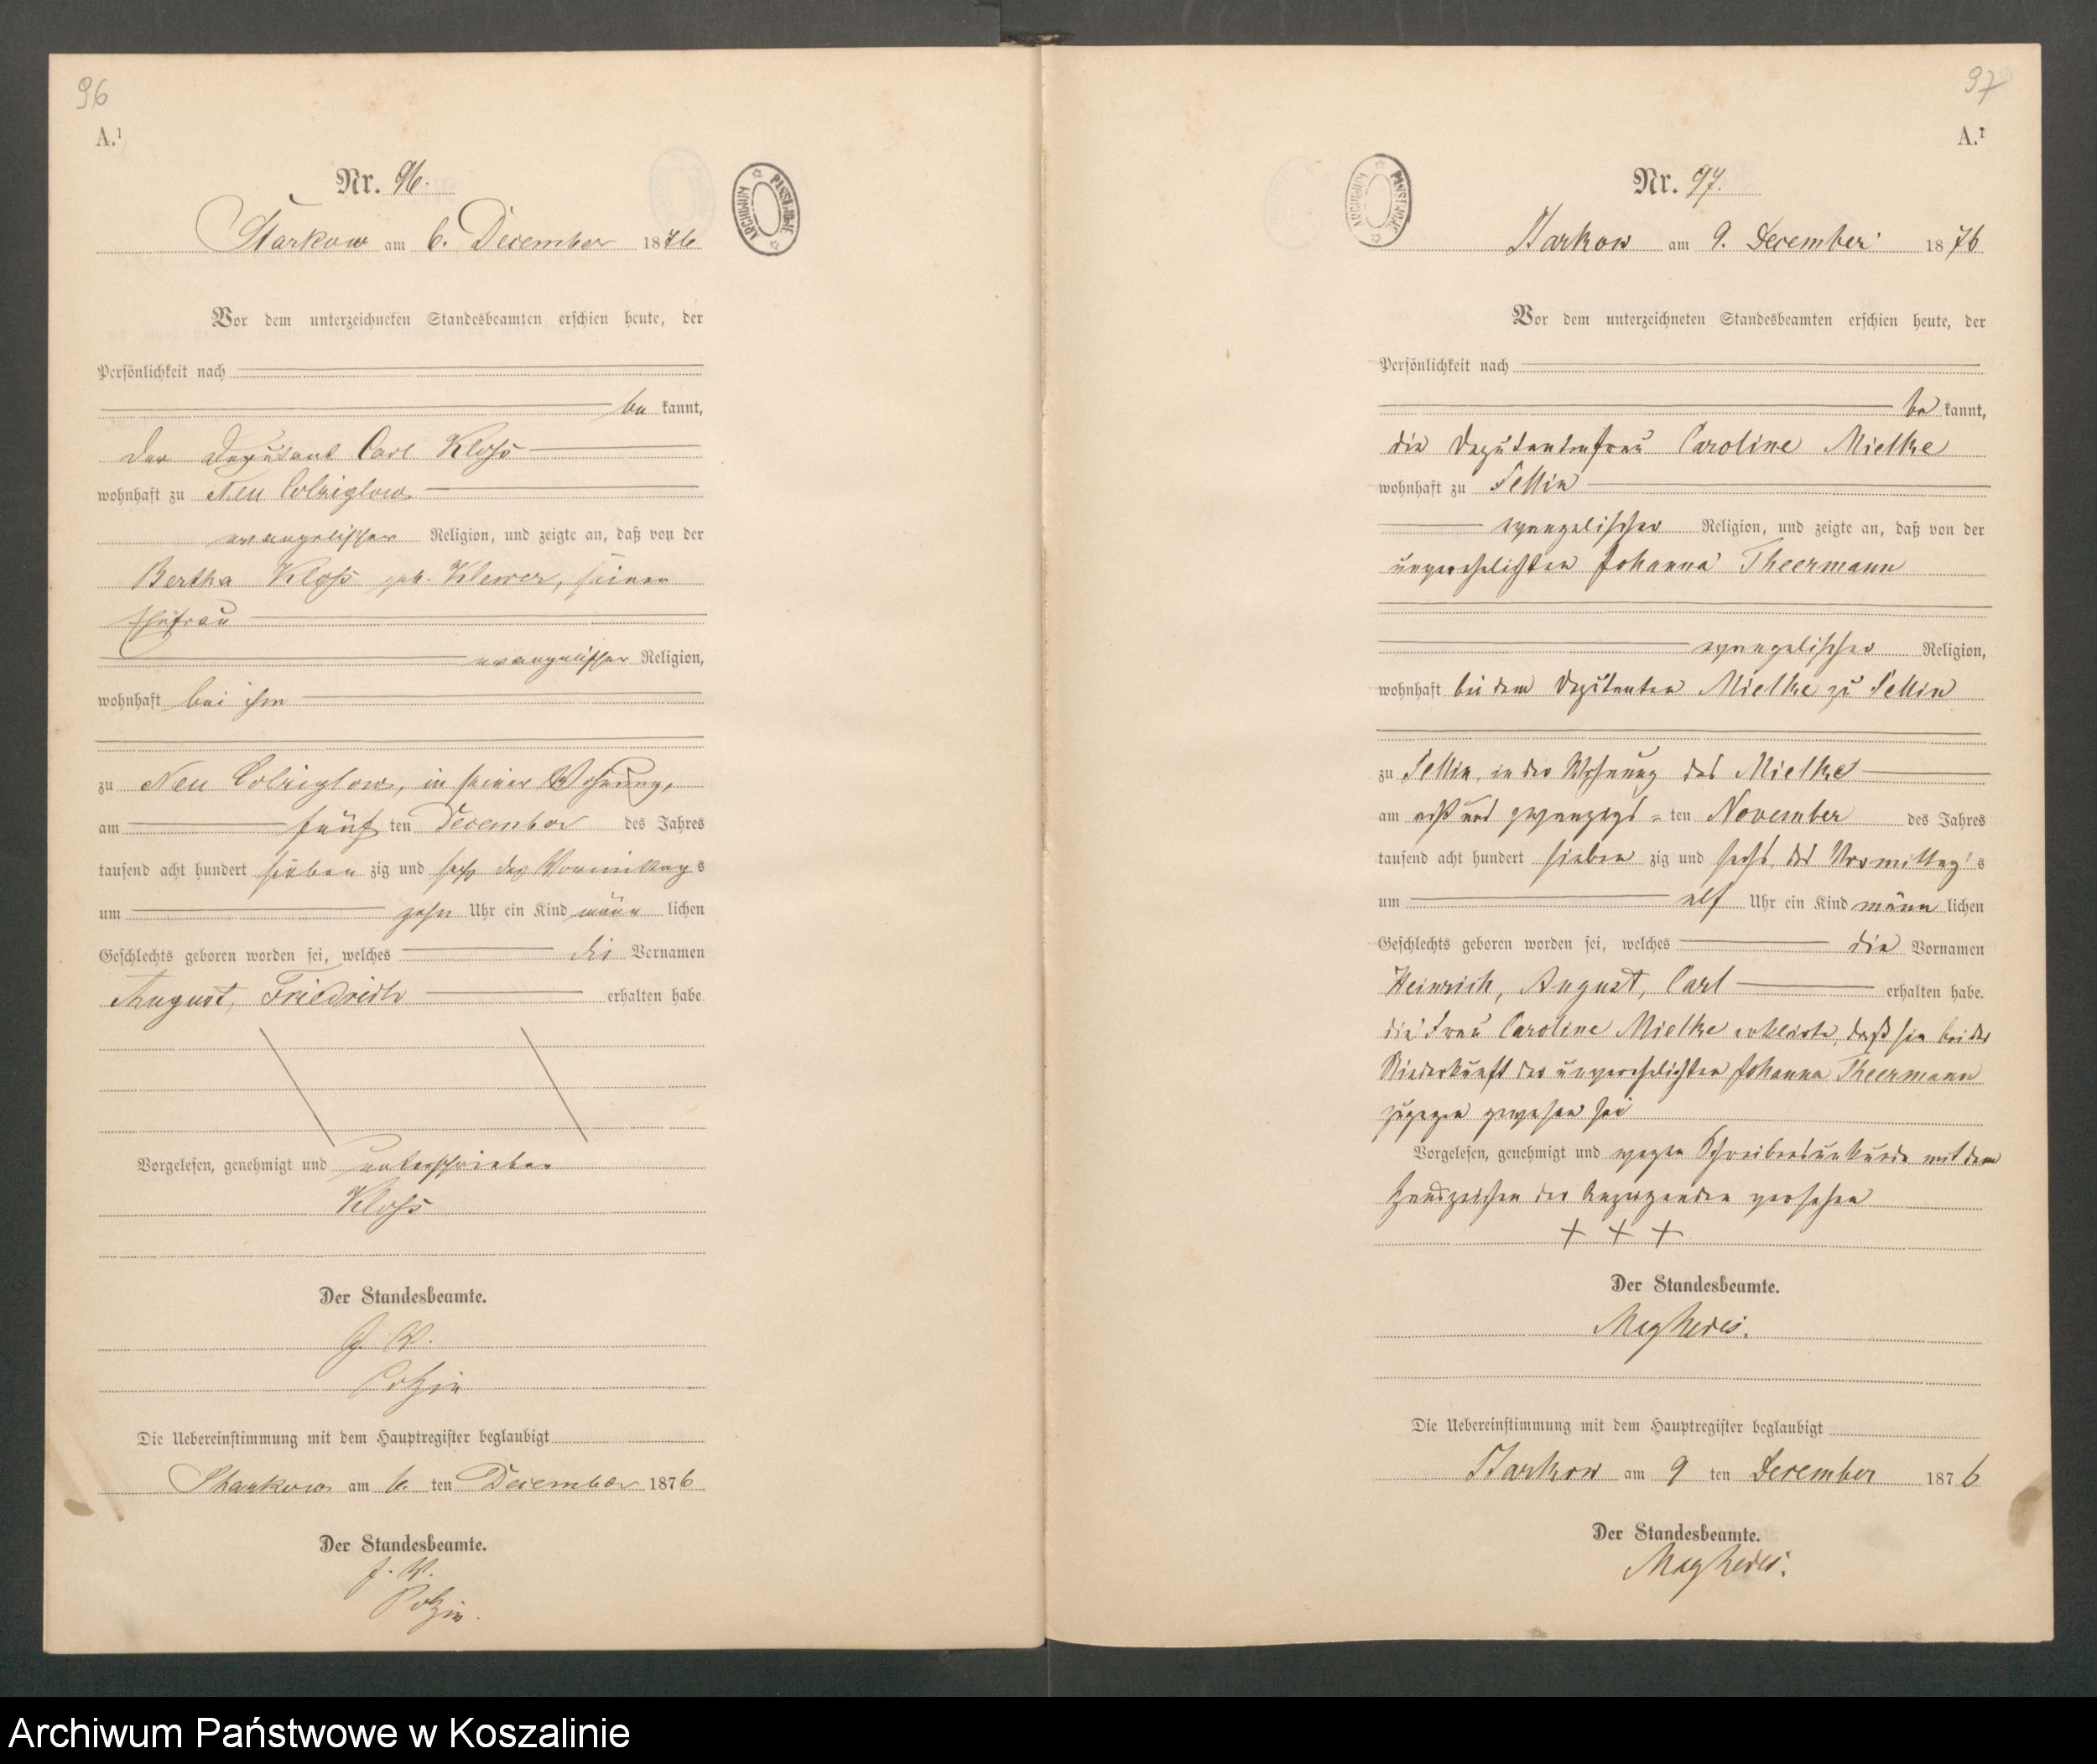 96
A.¹
Nr. 96.
ARCHIWUM PAŃSTWOWE
Starkow am 6. December 1876
Vor dem unterzeichneten Standesbeamten erschien heute, der
Persönlichkeit nach
be kannt,
der Deputant Carl Kloß
wohnhaft zu Neu Colziglow
evangelischer Religion, und zeigte an, daß von der
Bertha Kloß geb. Klewer, seiner
Ehefrau
evangelischer Religion,
wohnhaft bei ihm
zu Neu Colziglow, in seiner Wohnung,
am fünf ten December des Jahres
tausend acht hundert sieben zig und sechs des Vormittag s
um zehn Uhr ein Kind männ lichen
Geschlechts geboren worden sei, welches die Vornamen
August, Friedrich erhalten habe
Vorgelesen, genehmigt und unterschrieben
Kloß
Der Standesbeamte.
J. V.
Potzin
Die Uebereinstimmung mit dem Hauptregister beglaubigt
Starkow am 6. ten December 1876
Der Standesbeamte.
J. V.
Potzin.
97
A.¹
Nr. 97.
ARCHIWUM PAŃSTWOWE
Starkow am 9. December 1876
Vor dem unterzeichneten Standesbeamten erschien heute, der
Persönlichkeit nach
be kannt,
die Deputantenfrau Caroline Mielke
wohnhaft zu Sellin
evangelischer Religion, und zeigte an, daß von der
unverehelichten Johanna Theermann
evangelischer Religion,
wohnhaft bei dem Deputanten Mielke zu Sellin
zu Sellin, in der Wohnung des Mielke
am acht und zwanzigs - ten November des Jahres
tausend acht hundert sieben zig und sechs, des Vormittag's s
um elf Uhr ein Kind männ lichen
Geschlechts geboren worden sei, welches die Vornamen
Heinrich, August, Carl erhalten habe.
die Frau Caroline Mielke erklärte, daß sie bei der
Niederkunft der unverehelichten Johanna Theermann
zugegen gewesen sei
Vorgelesen, genehmigt und wegen Schreibensunkunde mit dem
Handzeichen der Anzeigenden versehen
+ + +
Der Standesbeamte.
Die Uebereinstimmung mit dem Hauptregister beglaubigt
Starkow am 9 ten December 1876
Der Standesbeamte.
Archiwum Państwowe w Koszalinie